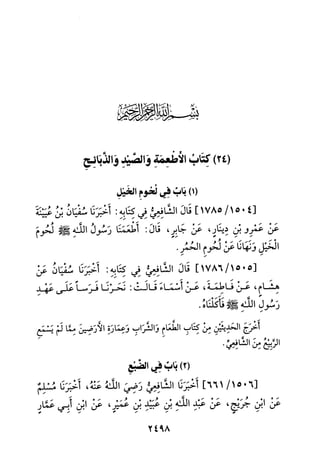 بسم الله الرحمن الرحيم
(٢٤) كِتَابُ الأَطْعِمَةِ وَالصَّيْدِ وَالذَّبَائِحِ
(١) بَابٌ فِي لُحُومِ الخَيْلِ
[١٥٠٤/ ١٧٨٥] قَالَ الشَّافِعِيُّ فِي كِتَابِهِ: أَخْبَرَنَا سُفْيَانُ بْنُ عُيَيْنَةَ
عَنْ عَمْرِو بْنِ دِينَارٍ، عَنْ جَابِرٍ، قَالَ: أَطْعَمَنَا رَسُولُ اللَّهِ ﷺ لُحُومَ
الْخَيْلِ وَنَهَانَا عَنْ لُحُومِ الْحُمُرِ.
[١٥٠٥/ ١٧٨٦] قَالَ الشَّافِعِيُّ فِي كِتَابِهِ: أَخْبَرَنَا سُفْيَانُ عَنْ
هِشَامٍ، عَنْ فَاطِمَةَ، عَنْ أَسْمَاءَ قَالَتْ: نَحَرْنَا فَرَسًا عَلَى عَهْدِ
رَسُولِ اللَّهِ ﷺ فَأَكَلْنَاهُ.
أَخْرَجَ الْحَدِيثَيْنِ مِنْ كِتَابِ الطَّعَامِ وَالشَّرَابِ وَعِمَارَةِ الأَرَضِينَ مِمَّا لَمْ يَسْمَعِ
الرَّبِيعُ مِنَ الشَّافِعِيِّ.
(٢) بَابٌ فِي الضَّبُعِ
[١٥٠٦/ ٦٦١] أَخْبَرَنَا الشَّافِعِيُّ رَضِيَ اللَّهُ عَنْهُ، أَخْبَرَنَا مُسْلِمٌ
عَنْ ابْنِ جُرَيْجٍ، عَنْ عَبْدِ اللَّهِ بْنِ عُبَيْدِ بْنِ عُمَيْرٍ، عَنْ ابْنِ أَبِي عَمَّارٍ
٢٤٩٨